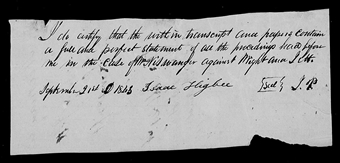 I do certify that the within transcript and papers contain
a full and perfect statement of all the procedings had before
me in the Case of against Wright and
September 21st 1843 Isaac Higbee Seal J. P